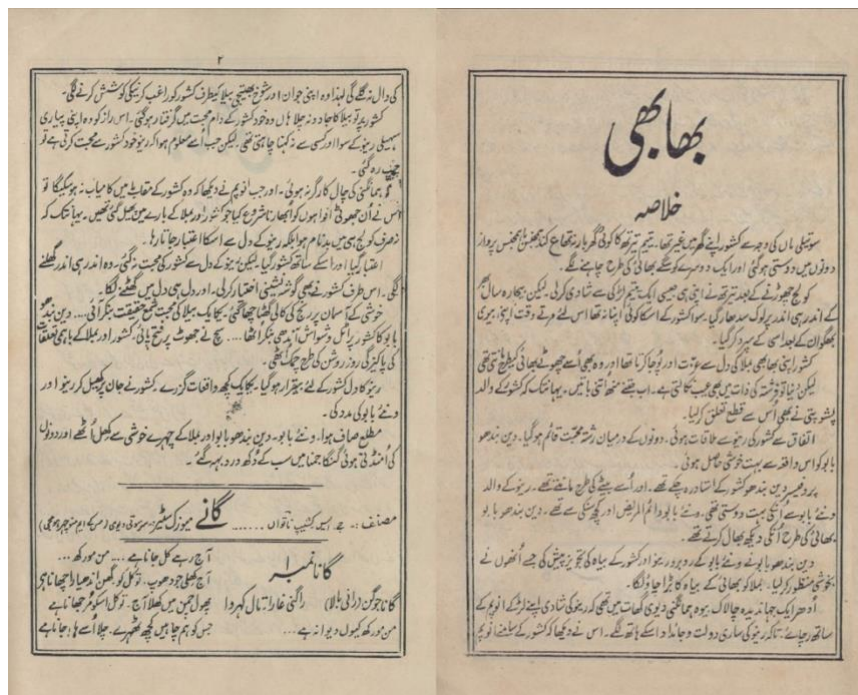 بھابھی
خلاصہ
سوتیلی ماں کی وجہ سے کشور اپنے گھر میں غیر تھا۔ یتیم تیرتھ کا کوئی گھر بار نہ تھا ع کند ہمجنس باہمجنس پرواز
دونوں میں دوستی ہوگئی اور ایک دوسرے کو سگے بھائی کی طرح چاہنے لگے۔
کولج چھوڑنے کے بعد تیرتھ نے اپنی ہی جیسی ایک یتیم لڑکی سے شادی کرلی۔ لیکن بیچارہ سال بھر
کے اندر ہی اندر پرلوک سدھار گیا۔ سوا کشور کے اسکا کوئی اپنا نہ تھا اس لئے مرتے وقت اپنی بیوی
بھگوان کے بعد اسی کے سپرد کر گیا۔
کشور اپنی بھابھی بملا کی دل سے عزت اور پوجا کرتا تھا اور وہ بھی اُسے چھوٹے بھائی کیطرح مانتی تھی
لیکن دنیا تو فرشتہ کی ذات میں بھی عیب نکالتی ہے۔ اب جتنے منھ اتنی باتیں۔ یہانتک کہ کشور کے والد
پشوپتی نے بھی اُس سے قطع تعلق کرلیا۔
اتفاق سے کشور کی رینو سے ملاقات ہوئی۔ دونوں کے درمیان رشتہ محبت قائم ہوگیا۔ دین بندھو
بابو کو اس واقعہ سے بہت خوشی حاصل ہوئی۔
پروفیسر دین بندھو کشور کے استاد رہ چکے تھے۔ اور اُسے بیٹے کی طرح مانتے تھے۔ رینو کے والد
ونئے بابو سے انکی بہت دوستی تھی۔ ونئے بابو دائم المریض اور کچھ سنکی سے تھے۔ دین بندھو بابو
بھائی کی طرح اُنکی دیکھ بھال کرتے تھے۔
دین بندھو بابو نے ونئے بابو کے روبرو رینو اور کشور کے بیاہ کی تجویز پیش کی جسے اُنھوں نے
بخوشی منظور کرلیا۔ بملا کو بھائی کے بیاہ کا بڑا چاؤ لگا۔
اُدھر ایک جہاندیدہ چالاک بیوہ ہمانگنی دیوی گھات میں تھی کہ رینو کی شادی اپنے لڑکے انوپم کے
ساتھ رچائے۔ تاکہ رینو کی ساری دولت وجائداد اسکے ہاتھ لگے۔ اس نے دیکھا کہ کشور کے سامنے انوپم
۲
کی دال نہ گلے گی لہذا وہ اپنی جوان اور شوخ بھتیجی بیلا کیطرف کشور کو راغب کرنیکی کوشش کرنے لگی۔
کشور پہ تو بیلا کا جادو نہ چلا ہاں وہ خود کشور کے دام محبت میں گرفتار ہوگئی۔ اس راز کو وہ اپنی پیاری
سہیلی رینو کے سوا اور کسی سے نہ کہنا چاہتی تھی۔ لیکن جب اُسے معلوم ہوا کہ رینو خود کشور سے محبت کرتی ہے تو
چپ رہ گئی۔
ہمانگنی کی چال کارگر نہ ہوئی۔ اور جب انوپم نے دیکھا کہ وہ کشور کے مقابلے میں کامیاب نہ ہوسکیگا تو
اُس نے اُن جھوٹی افواہوں کو اُبھارنا شروع کیا جو کشور اور بملا کے بارے میں پھیل گئی تھیں۔ یہانتک کہ
نہ صرف کولج ہی میں بدنام ہوا بلکہ رینو کے دل سے اسکا اعتبار جاتا رہا۔
اعتبار گیا اور اسکے ساتھ کشور گیا۔ لیکن رینو کے دل سے کشور کی محبت نہ گئی۔ وہ اندر ہی اندر گھلنے
لگی۔ اس طرف کشور نے بھی گوشہ نشینی اختیار کرلی۔ اور دل ہی دل میں گھٹنے لگا۔
خوشی کے آسمان پر رنج کی کالی گھٹا چھا گئی۔ یکایک بیلا کی محبت شمع حقیقت بنکر آئی.... دین بندھو
بابو کا کشور پر اٹل وشواش آندھی بنکر اُٹھا.... سچ نے جھوٹ پر فتح پائی۔ کشور اور بملا کے باہمی تعلقات
کی پاکیزگی روز روشن کی طرح چمک اُٹھی۔
رینو کا دل کشور کے لئے بیقرار ہوگیا۔ یکایک کچھ واقعات گزرے۔ کشور نے جان پر کھیل کر رینو اور
ونئے بابو کی مدد کی۔
مطلع صاف ہوا۔ ونئے بابو۔ دین بندھو بابو اور بملا کے چہرے خوشی سے کھل اُٹھے اور دونوں
کی اُمنڈتی ہوئی گنگا جمنا میں سب کے دُکھ درد بہہ گئے۔
مصنف:۔ جے ایس کشیپ ناتواں ........ گانے میوزک ماسٹر:۔ سرسوتی دیوی
گانا نمبر ۱
گانا جوگن (رانی بالا) راگنی غارا تال کہروا
من مورکھ کیوں دیوانہ ہے...
آج رہے کل جانا ہے.... من مورکھ ...
آج کھلی جو دھوپ۔ تو کل کو گھن اندھیارا چھانا ہی
پھول چمن میں کھلا آج۔ تو کل اسکو مُرجھانا ہے
جس کو ہم چاہیں کچھ ٹھہرے۔ چلا اُسے ہا، جانا ہے